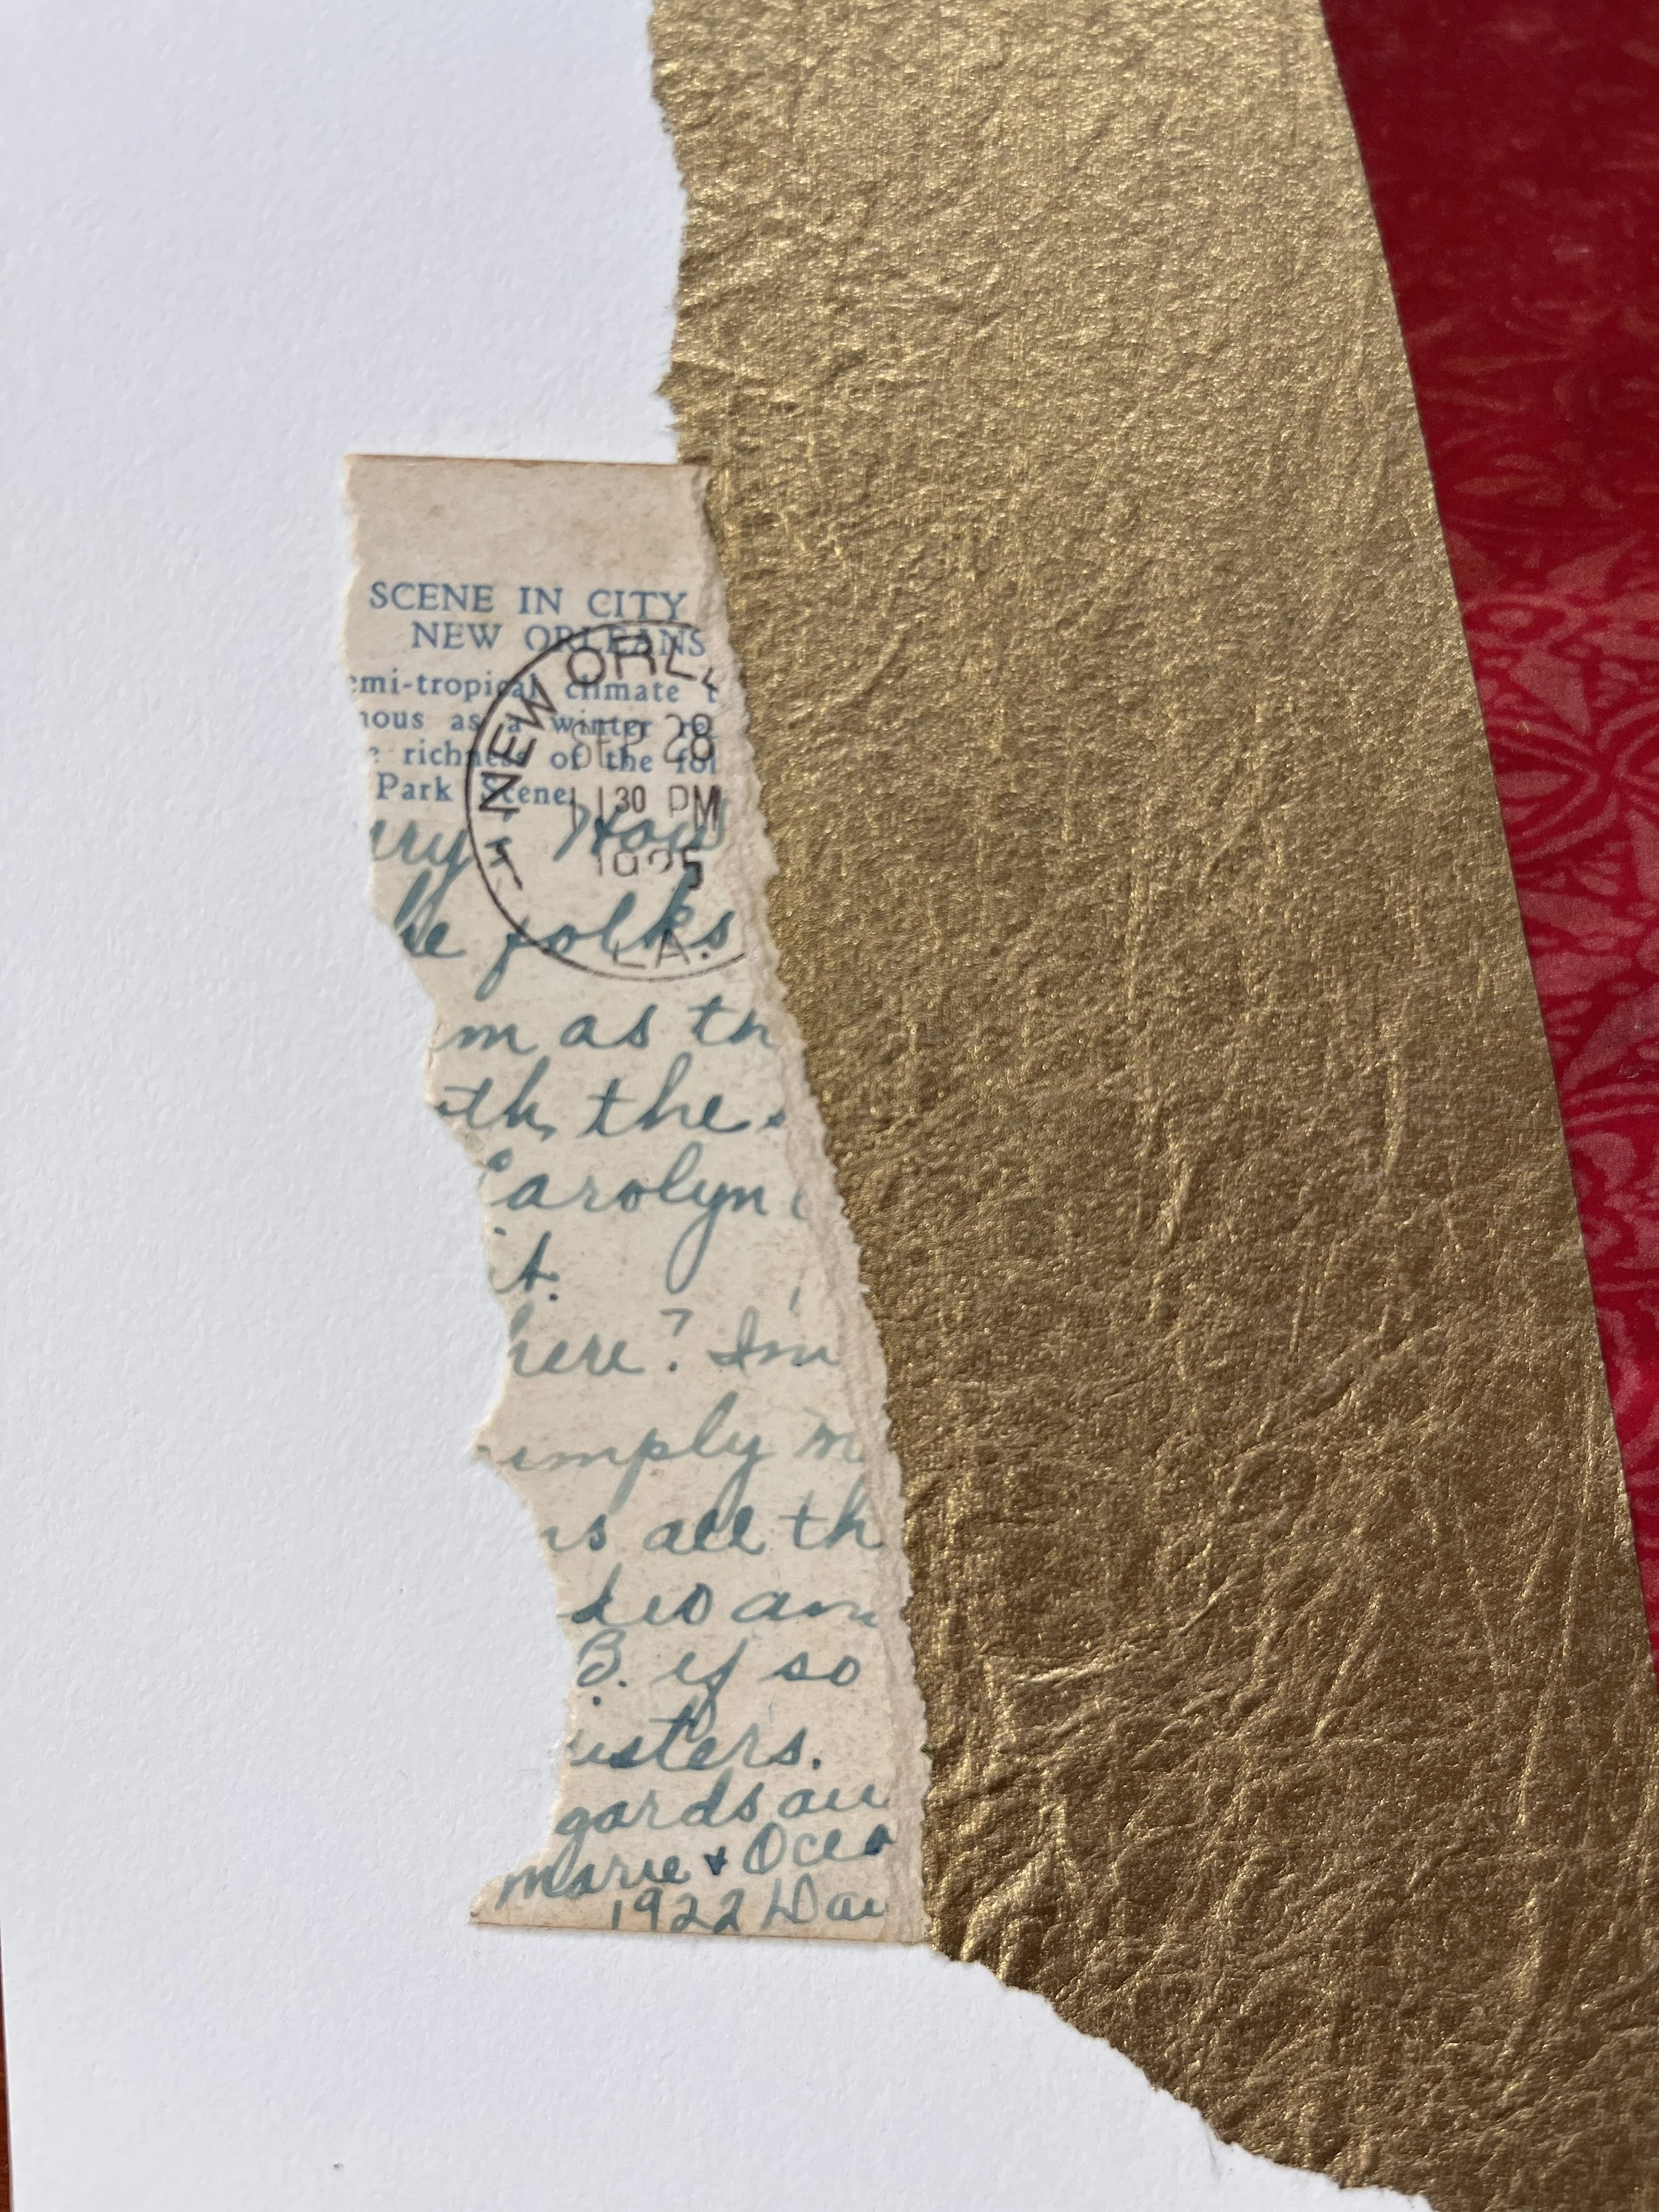 SCENE IN CITY
NEW ORLEANS
emi-tropical climate
nous as a winter
richness of the fol
Park Scene
NEW ORL
SEP 28
11 30 PM
LA.
ury. How
he folks
m as th
th the
Carolyn
it.
here? I'm
simply m
ns all th
des an
B. if so
isters.
gards
Marie + Oceo
1922 Dau